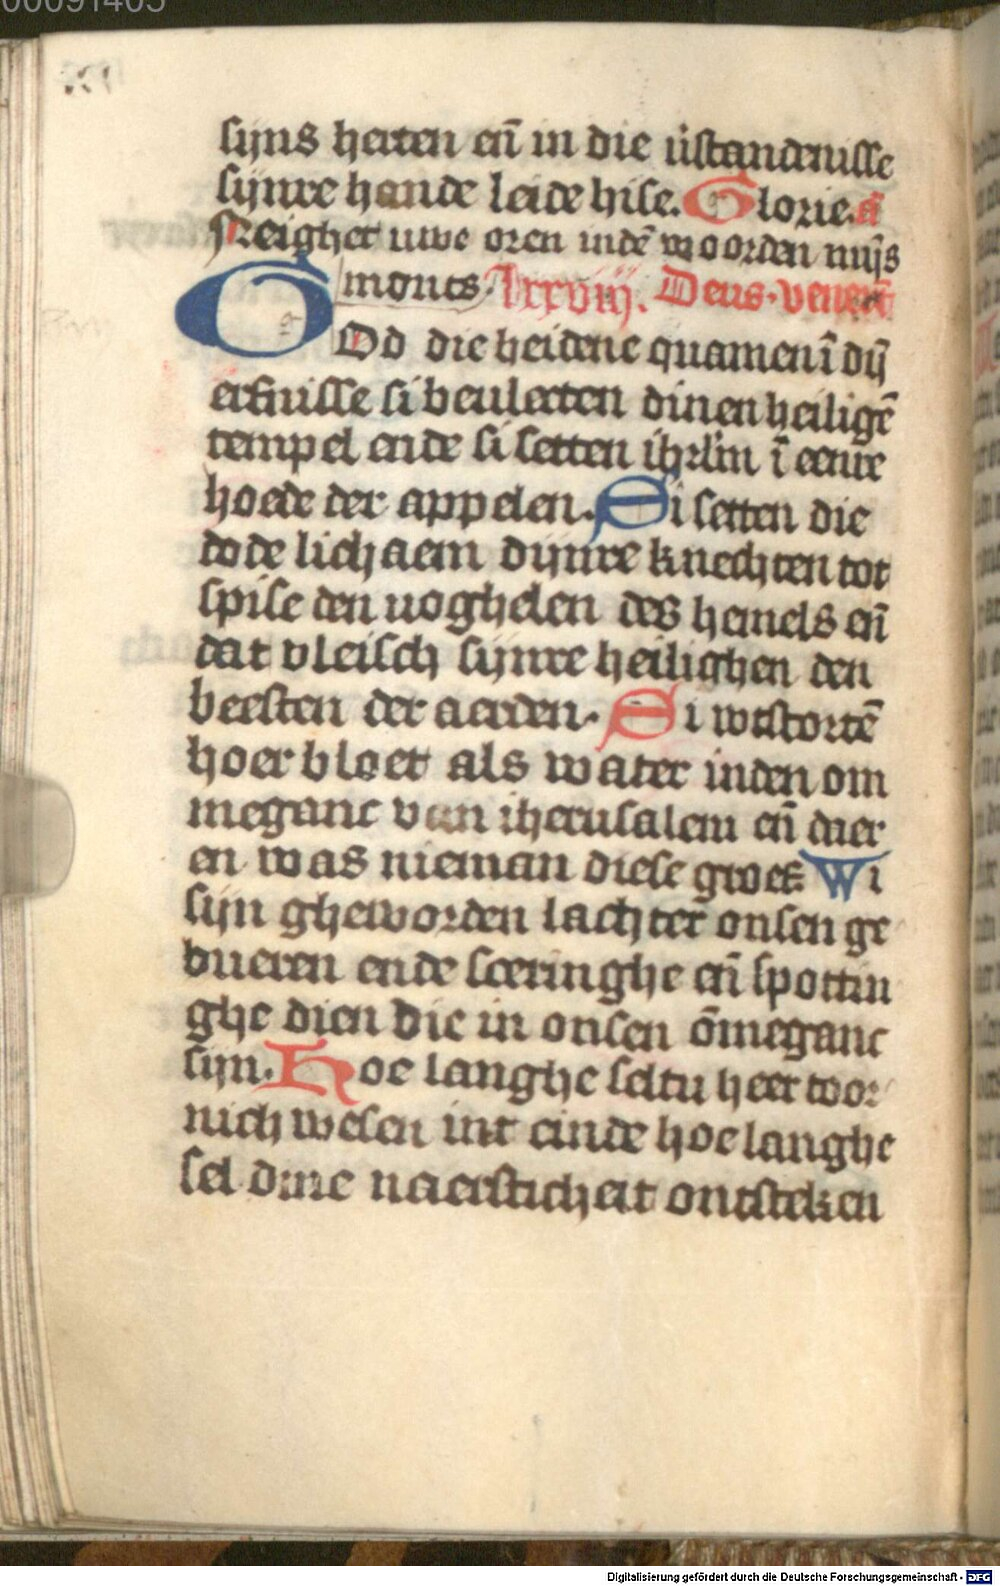 00091405
sijns herten eñ in die ũstandenisse
sijnre hande leide hise. Glorie. añ
Neighet uwe oren indē woorden mijs
monts. lxxviij. Deus venerūt
God die heidene quamen ī dij̄
erfnisse si beulecten dinen heiligē
tempel ende si setten ihrlm̄ ī eenre
hoede der appelen. Si setten die
dode lichaem dijnre knechten tot
spise den uoghelen des hemels eñ
dat vleisch sijnre heilighen den
beesten der aerden. Si wtstortē
hoer bloet als water inden om
meganc van iherusalem eñ daer
en was nieman diese groef. Wi
sijn gheworden lachter onsen ge
bueren ende sceringhe eñ spottin
ghe dien die in onsen ōmeganc
sijn. Hoe langhe seltu heer toor
nich wesen int einde hoe langhe
sel dine naersticheit ontsteken
Digitalisierung gefördert durch die Deutsche Forschungsgemeinschaft - DFG